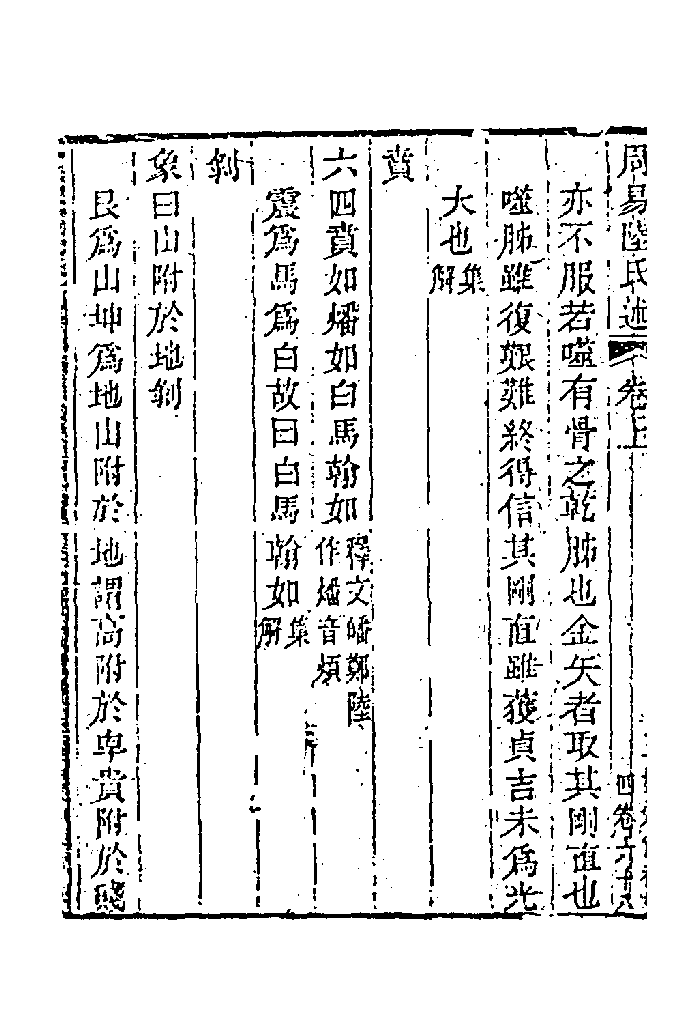 周易陸氏述 卷上 四 卷六十八
亦不服若噬有骨之乾胏也金矢者取其剛直也
噬胏雖復艱難終得信其剛直雖獲貞吉未爲光
大也集解
賁
六四賁如燔如白馬翰如釋文皤鄭陸作燔音煩
震爲馬爲白故曰白馬翰如集解
剝
象曰山附於地剝
艮爲山坤爲地山附於地謂高附於卑貴附於賤